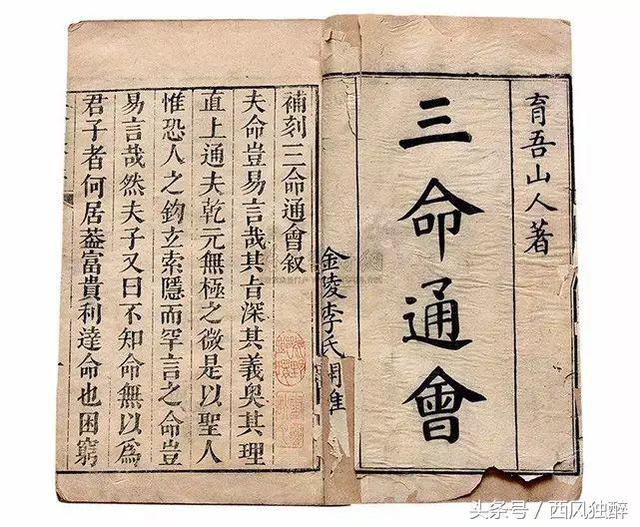 育吾山人著
三命通會
金陵李氏
補刻三命通會叙
夫命豈易言哉其旨深其義奥其理
直上通夫乾元無極之微是以聖人
惟恐人之鈎立索隱而罕言之命豈
易言哉然夫子又曰不知命無以爲
君子者何居葢富貴利達命也困窮
头条号／西风独醉